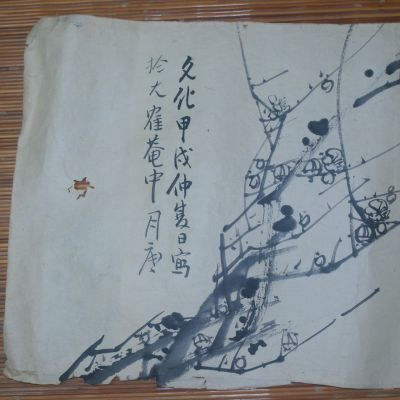 文化甲戌仲夏日寫
於大雀菴中 月唐